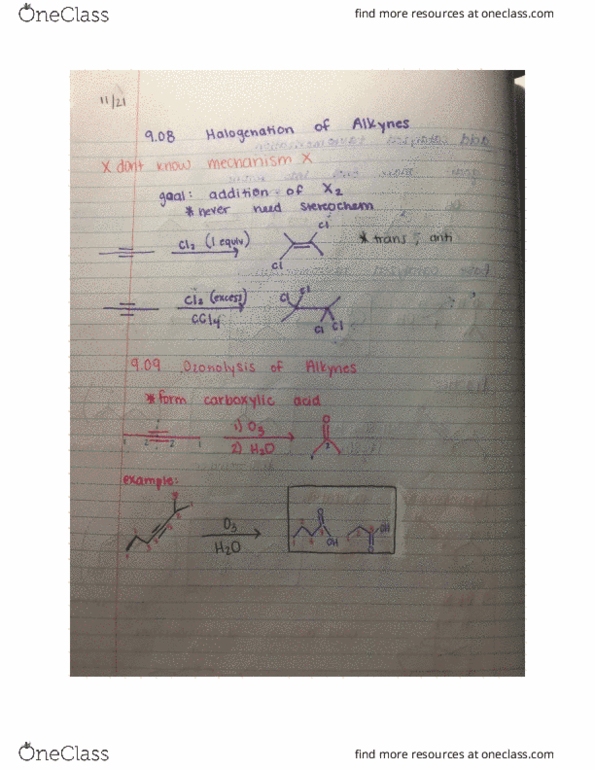 OneClass
find more resources at oneclass.com
11/21
9.08 Halogenation of Alkynes
X dont know mechanism X
goal: addition of X2
* never need stereochem
Cl2 (1 equiv)
Cl
Cl
* trans, anti
Cl2 (excess)
CCl4
Cl Cl
Cl Cl
9.09 Ozonolysis of Alkynes
* form carboxylic acid
1 2 2 1
1) O3
2) H2O
O
2
example:
O3
H2O
O
OH
OH
O
OneClass
find more resources at oneclass.com